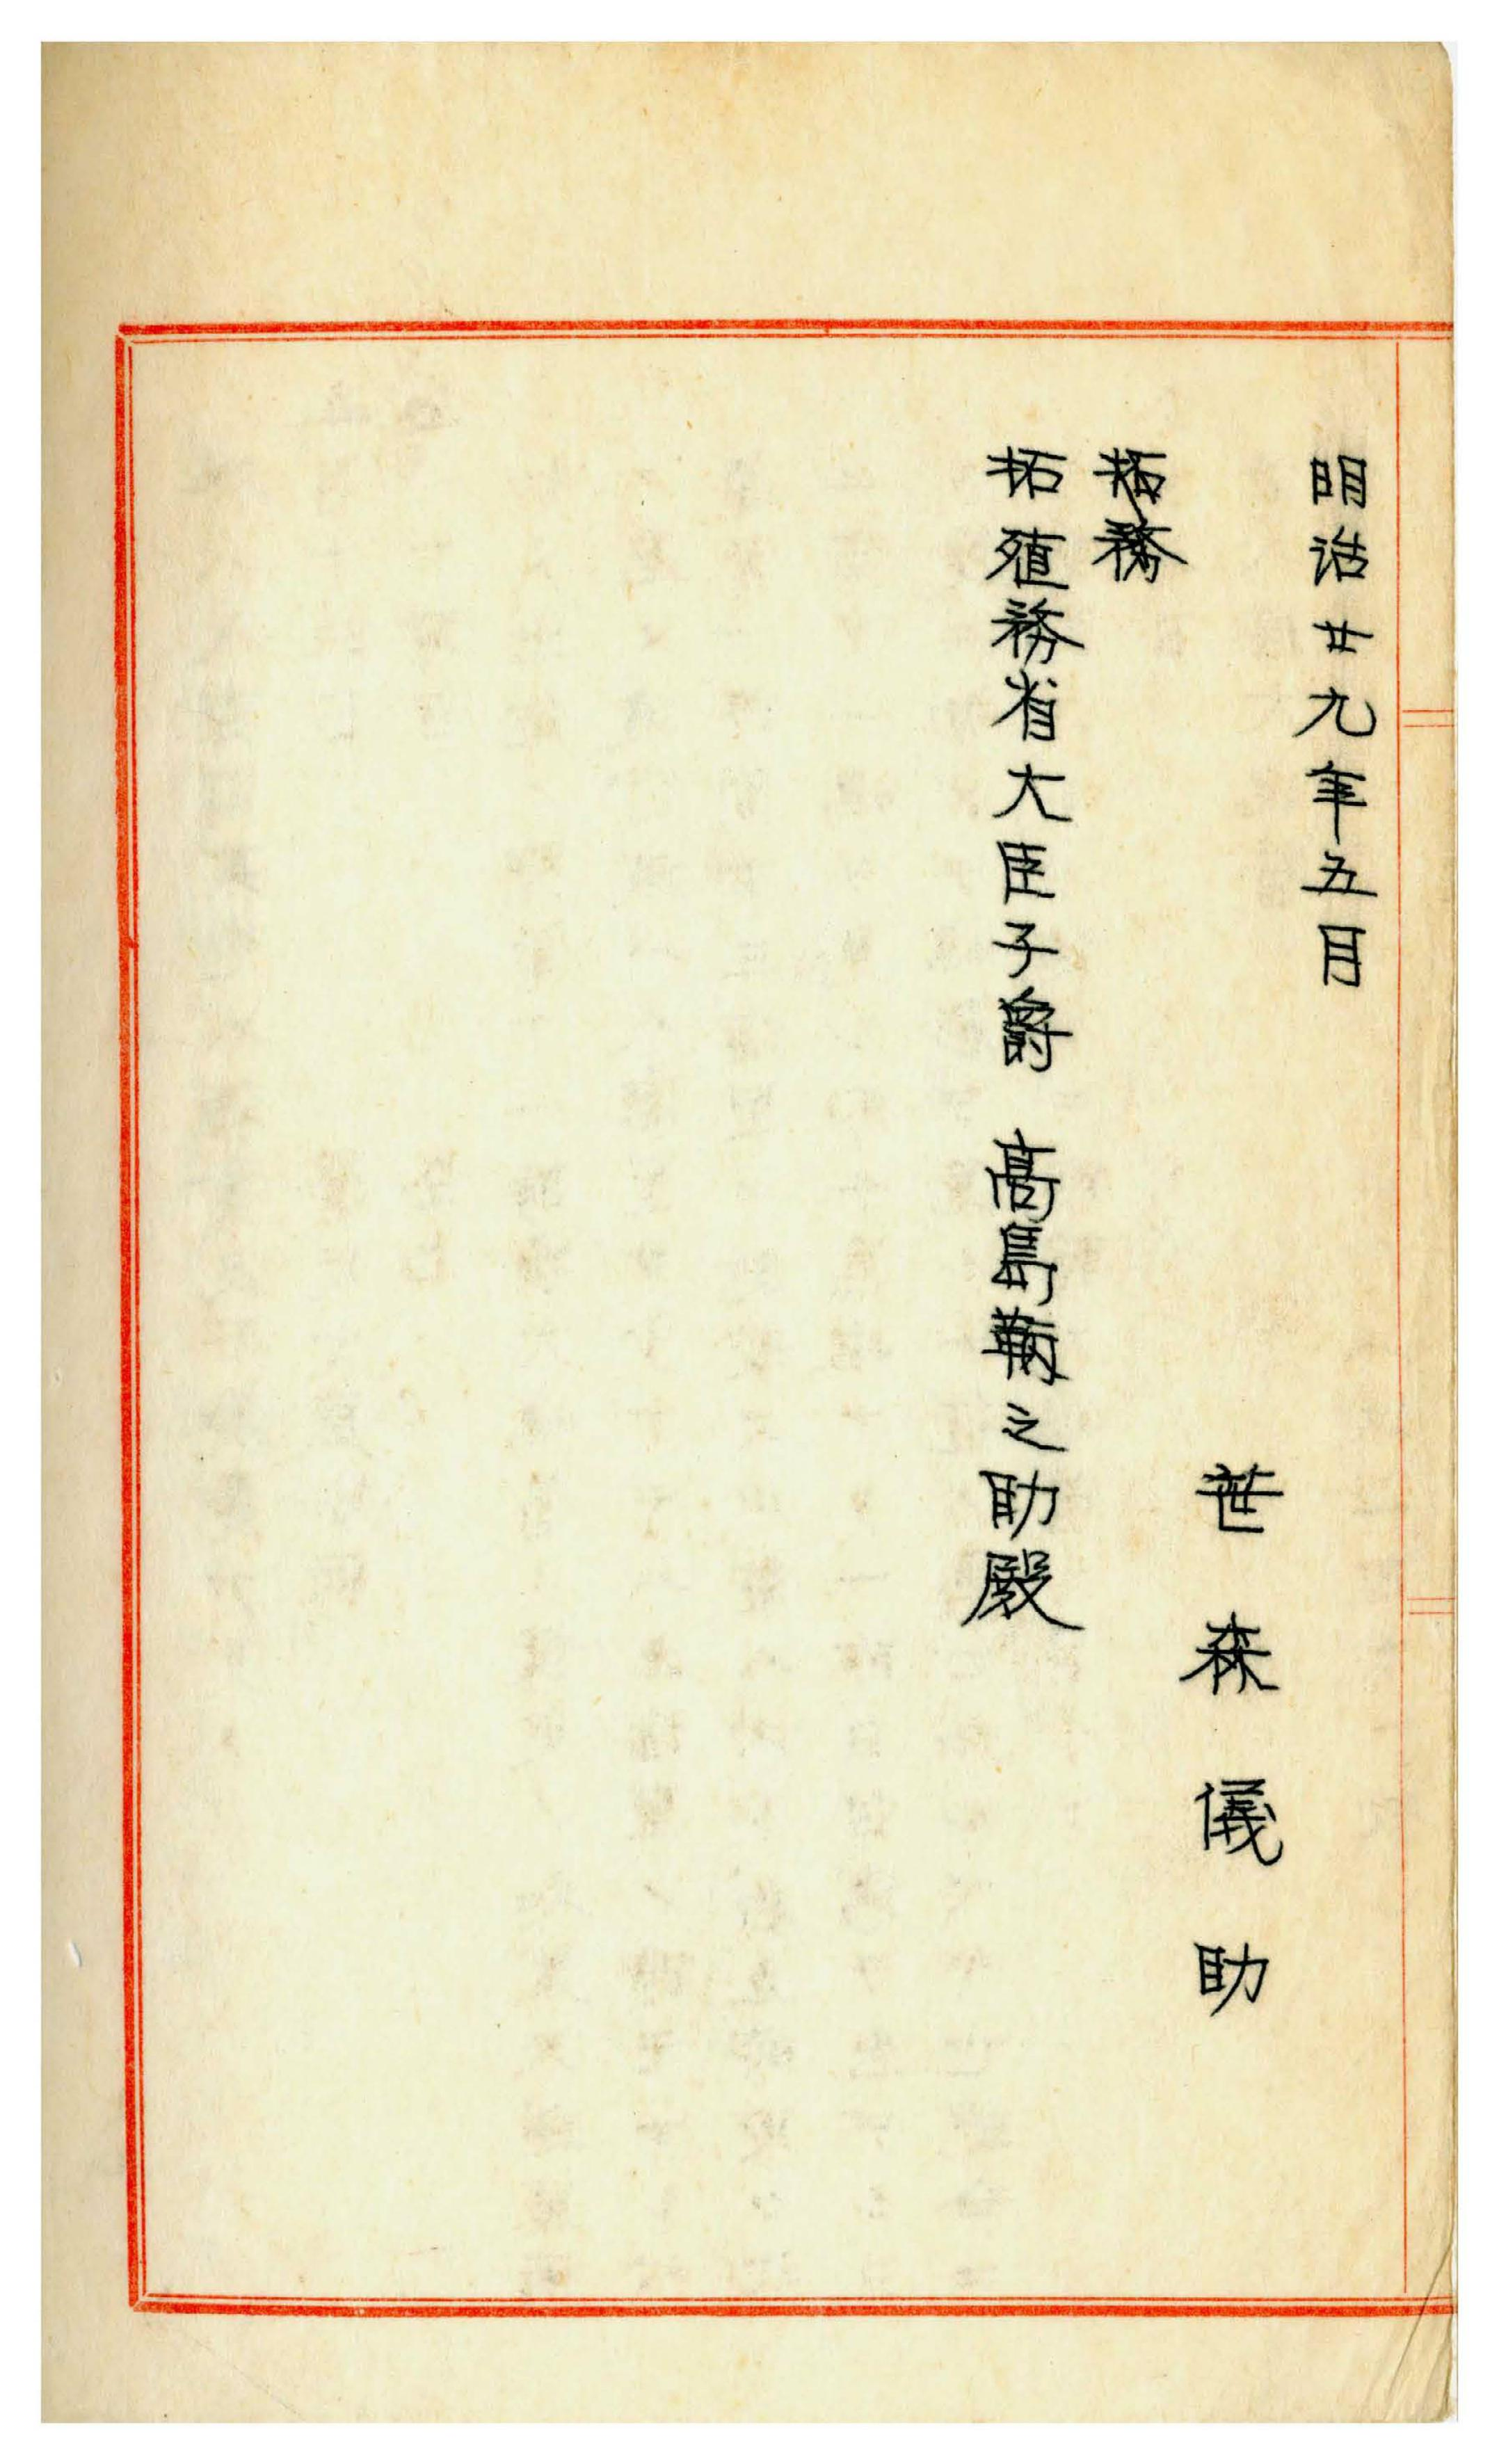 明治廿九年五月
笹森儀助
拓務
拓殖務省大臣子爵 高島鞆之助殿